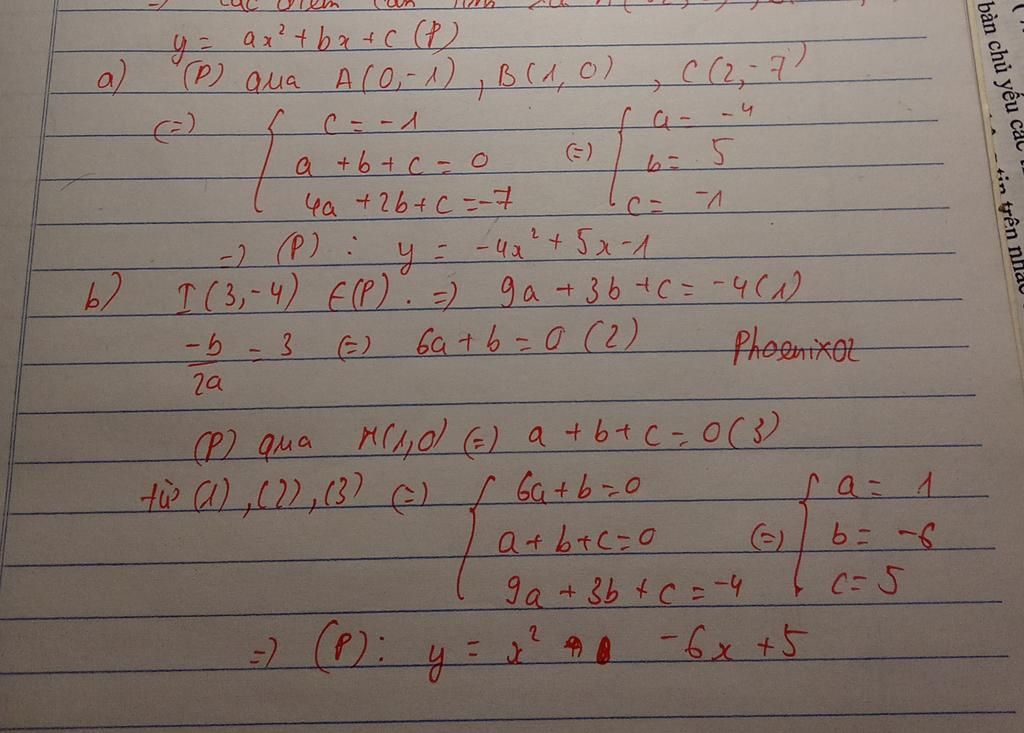 y = ax² + bx + c (P)
a) (P) qua A(0,-1) , B(1,0) , C(2,-7)
(=) { c = -1 (=) { a = -4
a + b + c = 0 b = 5
4a + 2b + c = -7 c = -1
=) (P) : y = -4x² + 5x - 1
b) I(3,-4) ∈(P) . =) 9a + 3b + c = -4 (1)
-b/2a = 3 (=) 6a + b = 0 (2)
Phoenix02
(P) qua M(1,0) (=) a + b + c = 0 (3)
từ (1), (2), (3) (=) { 6a + b = 0 (=) { a = 1
a + b + c = 0 b = -6
9a + 3b + c = -4 c = 5
=) (P): y = x² - 6x + 5
bàn chủ yếu các
tin trên nhãc